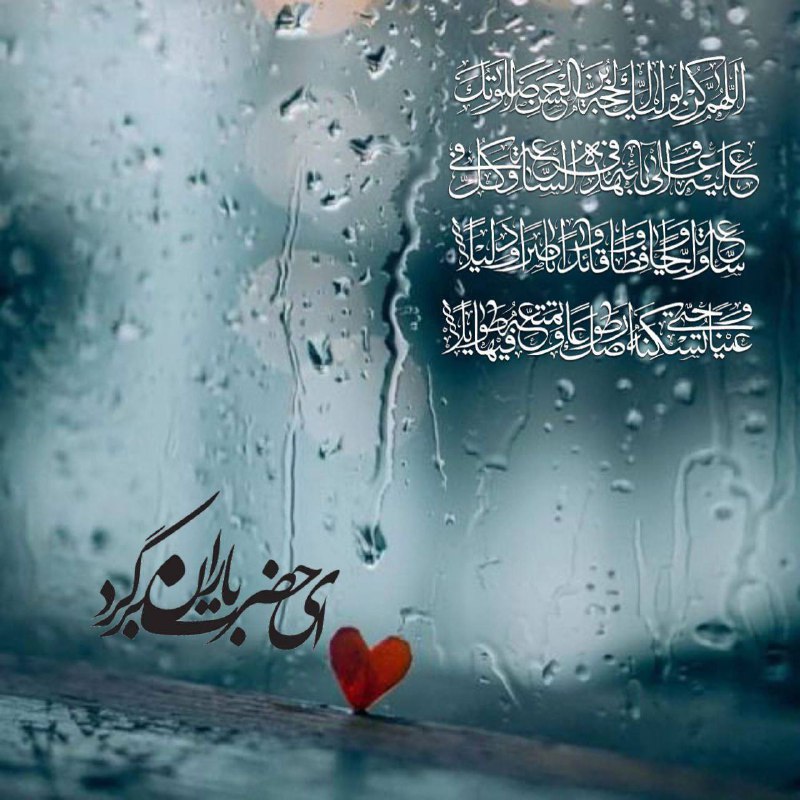 اَللّهُمَّ كُنْ لِوَلِيِّكَ الْحُجَّةِ بْنِ الْحَسَنِ صَلَواتُكَ
عَلَيْهِ وَعَلى آبائِهِ في هذِهِ السّاعَةِ وَفي كُلِّ
ساعَةٍ وَلِيّاً وَحافِظاً وَقائِداً وَناصِراً وَدَليلاً
وَعَيْناً حَتّى تُسْكِنَهُ أَرْضَكَ طَوْعاً وَتُمَتِّعَهُ فيها طَويلاً
ای حضرت باران برگرد